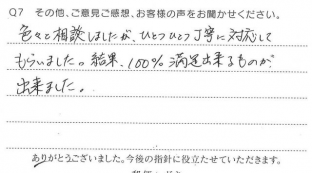 Q7 その他、ご意見ご感想、お客様の声をお聞かせください。
色々と相談しましたが、ひとつひとつ丁寧に対応して
もらいました。結果、100%満足出来るものが
出来ました。
ありがとうございました。今後の指針に役立たせていただきます。